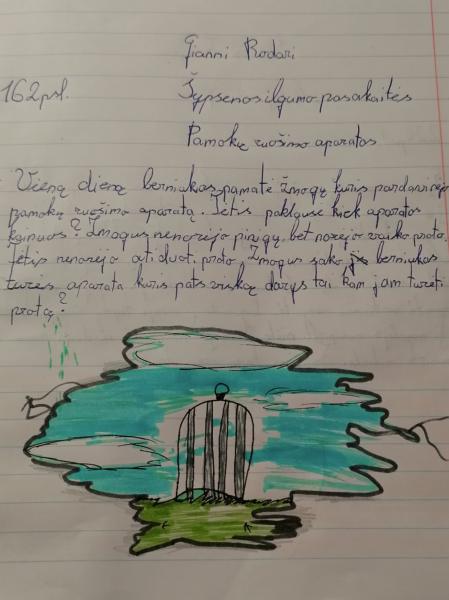 Gianni Rodari
162psl. Šypsenos ilgumo pasakaitės
Pamokų ruošimo aparatas
Vieną dieną berniukas pamatė žmogų kuris pardavinėjo
pamokų ruošimo aparatą. Tėtis paklausė kiek aparatas
kainuos? Žmogus nenorėjo pinigų, bet norėjo vaiko proto.
Tėtis nenorėjo atiduoti proto. Žmogus sako berniukas
turės aparatą kuris pats viską darys tai kam jam turėti
protą?